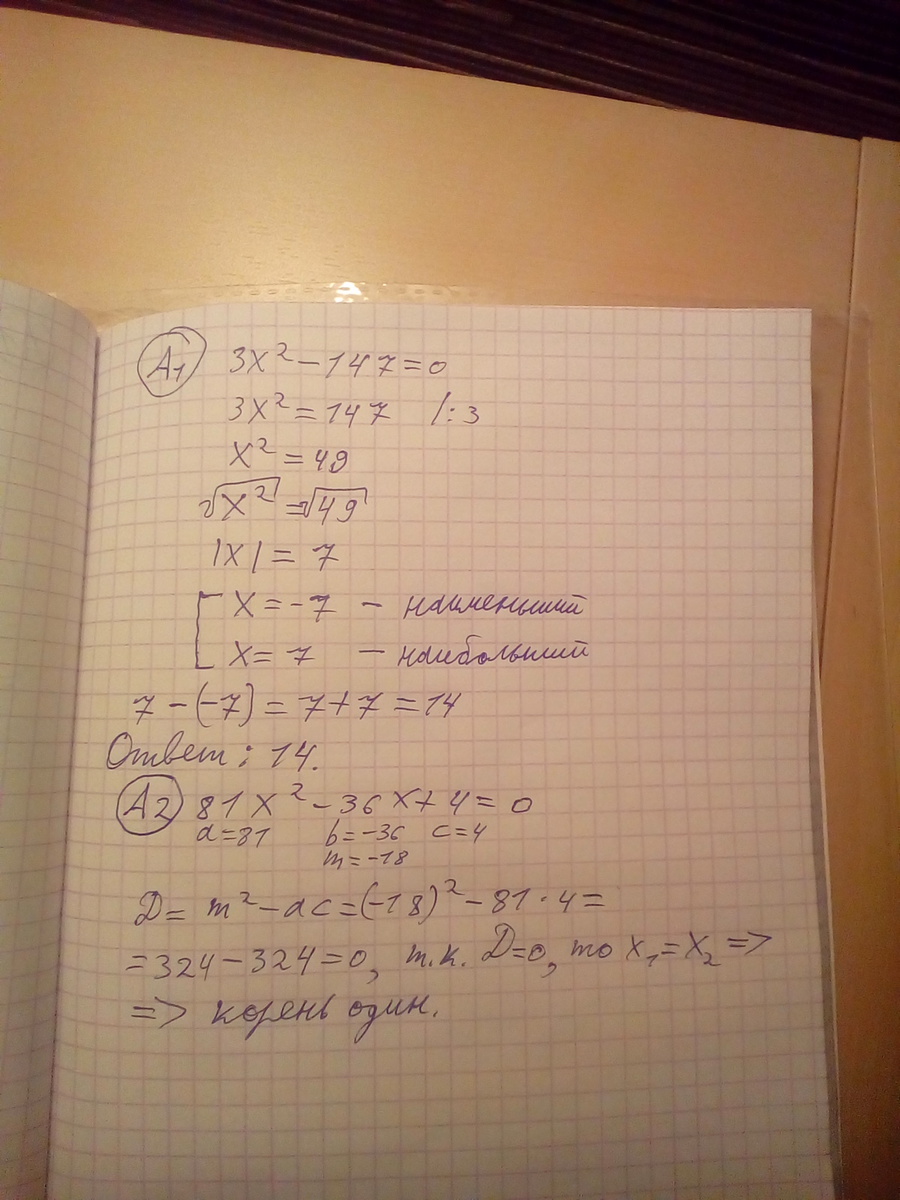 A1 3x² - 147 = 0
3x² = 147 /:3
x² = 49
√x² = √49
|x| = 7
x = -7 - наименьший
x = 7 - наибольший
7 - (-7) = 7 + 7 = 14
Ответ: 14.
A2 81x² - 36x + 4 = 0
a = 81 b = -36 c = 4
m = -18
D = m² - ac = (-18)² - 81 · 4 =
= 324 - 324 = 0, т.к. D=0, то x₁ = x₂ =>
=> корень один.